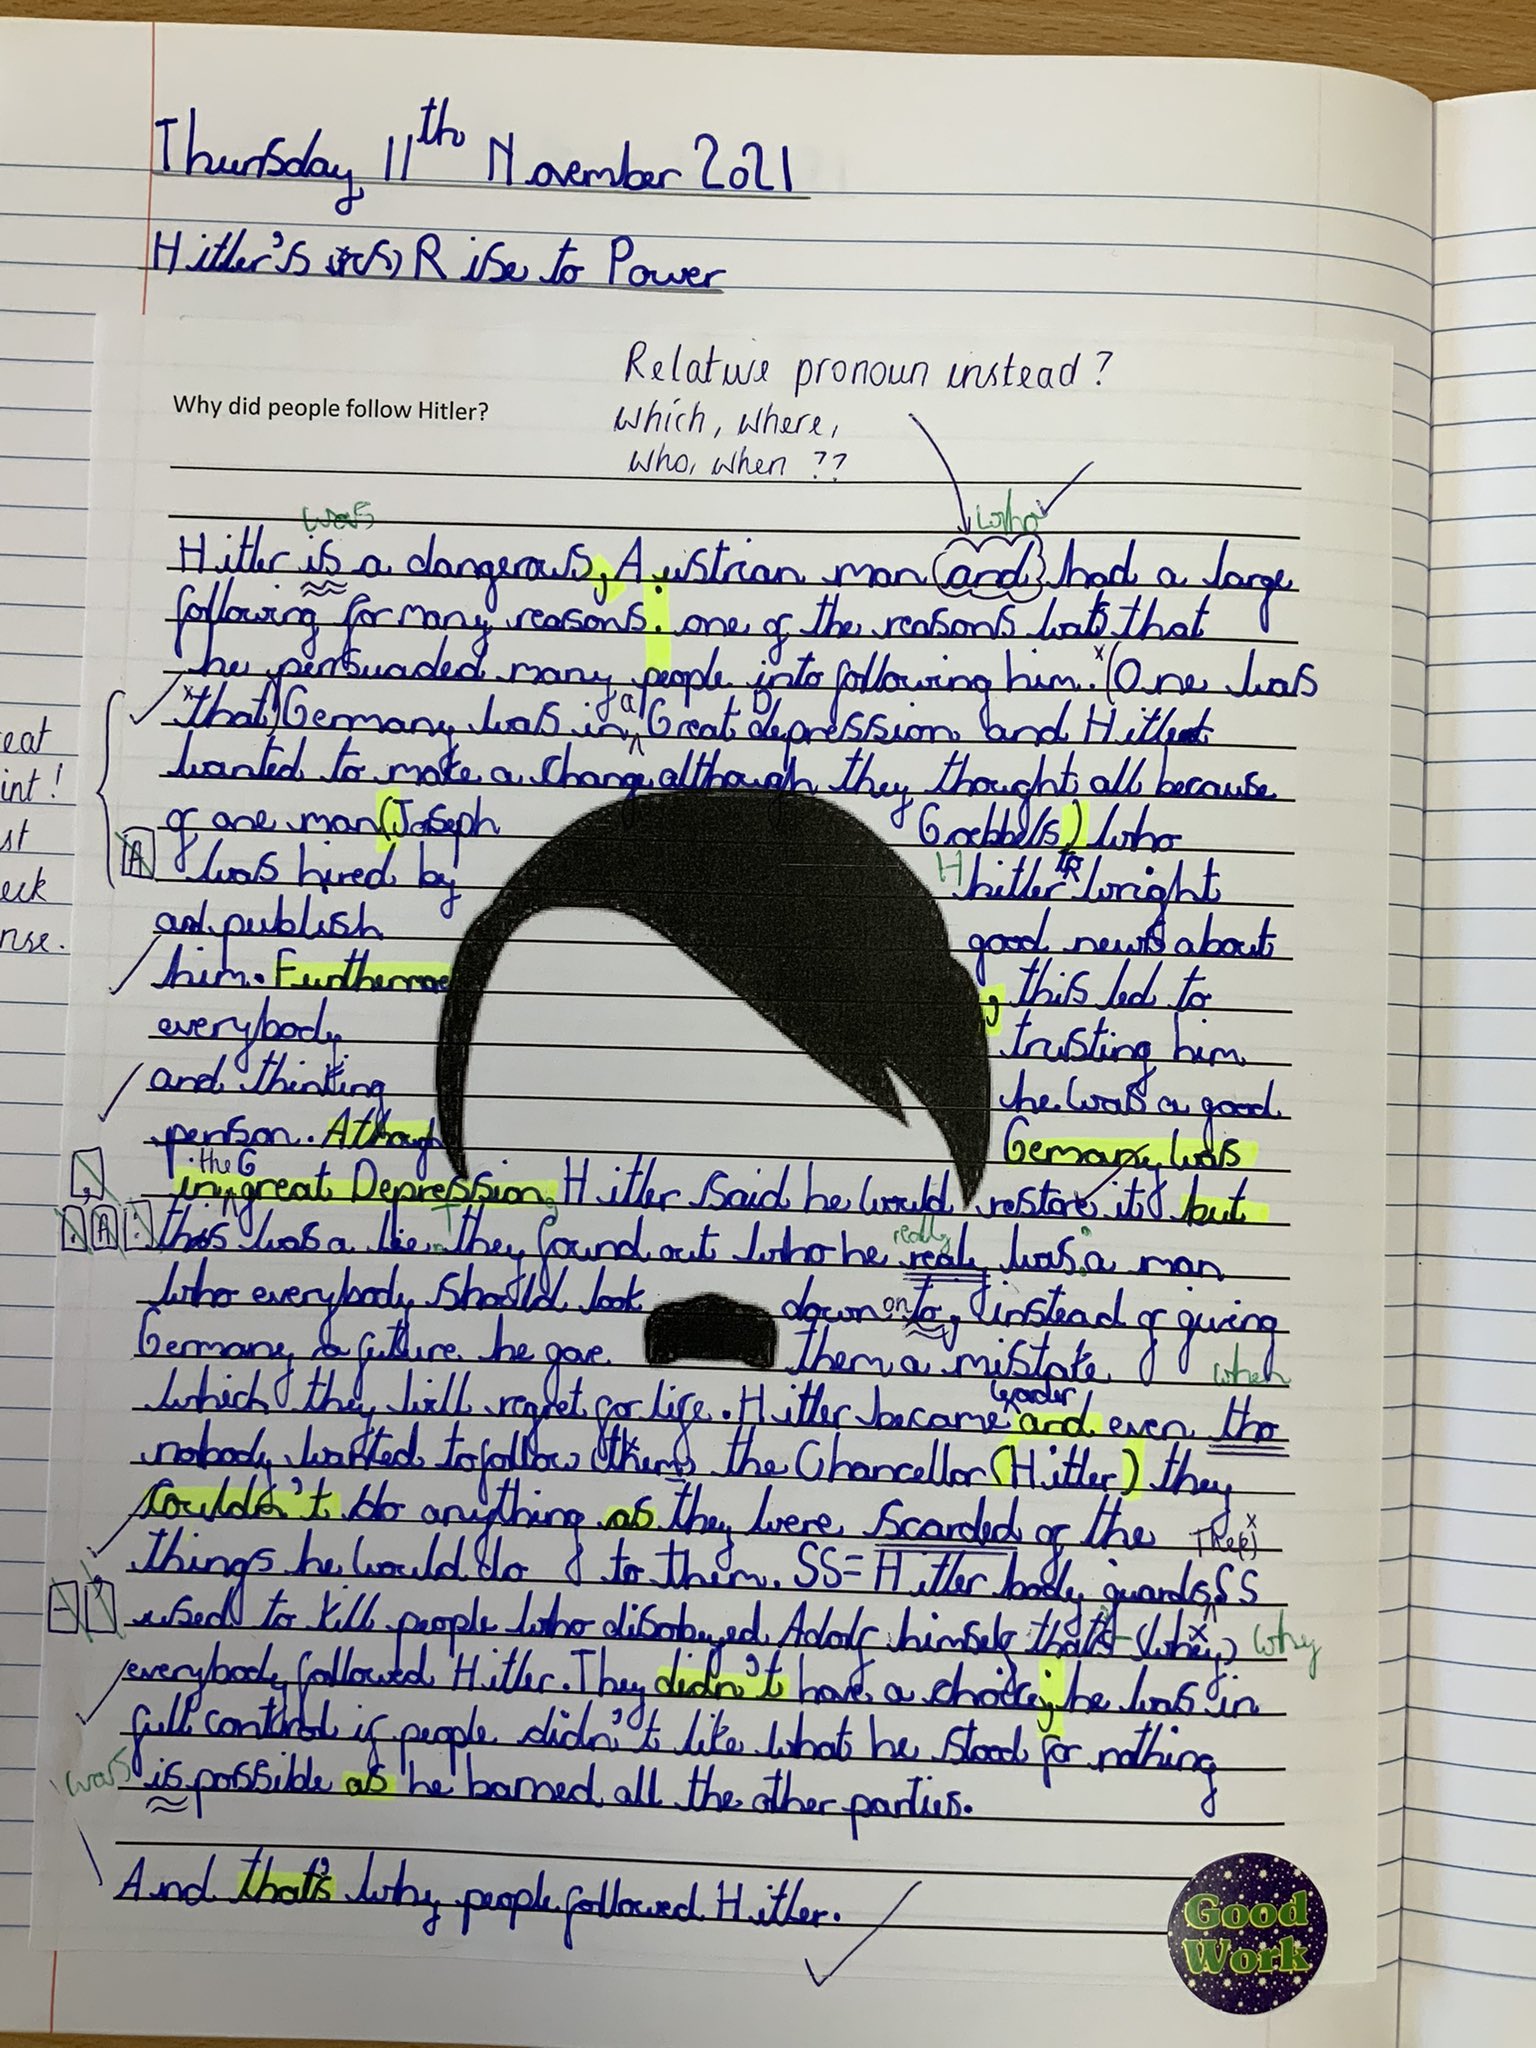 Thursday 11th November 2021
Hitler's Rise to Power
Relative pronoun instead?
Why did people follow Hitler?
which, where,
who, when ??
was
who
Hitler is a dangerous, Austrian man and had a large
following for many reasons: one of the reasons was that
he persuaded many people into following him. (One was
that) Germany was in a Great Depression and Hitler
eat
wanted to make a change although they thought all because
int!
of one man (Joseph Goebbels) who
st
A was hired by Hitler TR wright
eck
and publish good news about
nse.
him. Furthermore, this led to
everybody trusting him
and thinking he was a good
person. Although Germany was
the G
in great Depression, Hitler said he would restore it but
this was a lie. They found out who he realy was: a man
really
who everybody should look down on to, instead of giving
Germany a future he gave them a mistake
when
which they will regret for life. Hitler became leader and even tho
nobody wanted to follow them the Chancellor (Hitler) they
couldn't do anything as they were scarded of the
The(e)
things he would do to them. SS = Hitler body guards, SS
used to kill people who disobeyed Adolf himself that's - (whey) why
everybody followed Hitler. They didn't have a choice; he was in
full control if people didn't like what he stood for nothing
was
is possible as he banned all the other parties.
And that's why people followed Hitler.
Good
Work